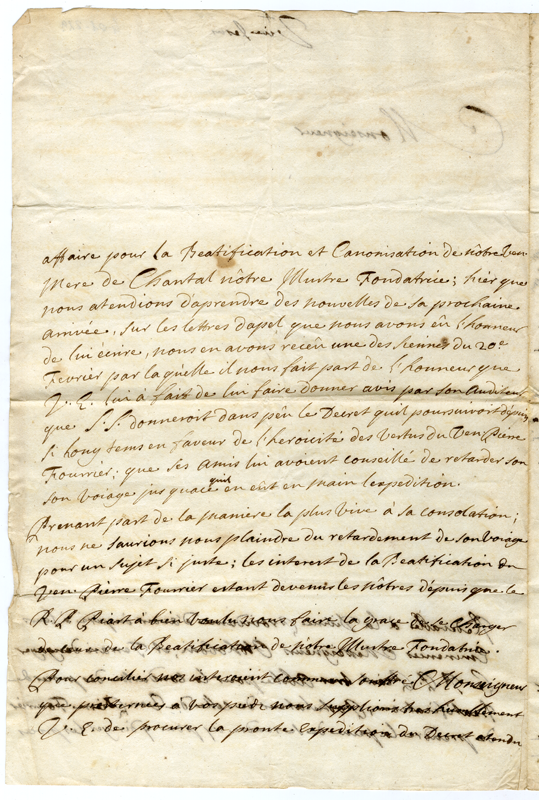 affaire pour la Beatification et Canonisation de nôtre Ven
Mere de Chantal nôtre Illustre Fondatrice; hier que
nous atendions d'aprendre des nouvelles de sa prochaine
arrivée, sur les lettres d'apel que nous avons êu l'honneur
de lui écrire, nous en avons recêu une des siennes du 20e
Fevrier par laquelle il nous fait part de l'honneur que
V. E. lui à fait de lui faire donner avis par son Auditeur
que S. S. donneroit dans pêu le Decret quil poursuivoit depuis
si long tems en faveur de l'heroicité des vertus du Ven Pierre
Fourrier; que ses amis lui avoient conseillé de retarder son
son voiage jusquace quil en eut en main l'expedition.
Prenant part de la maniere la plus vive à sa consolation;
nous ne saurions nous plaindre du retardement de son voiage
pour un sujet si juste; les interest de la Beatification du
Ven Pierre Fourrier estant devenus les nôtres dépuis que le
R. P. Piart à bien voulu nous faire la grace de se Charger
de celle de la Beatification de nôtre Illustre Fondatrice.
Pour concilier nos interest Monseigneur
que prosternées a vos pieds nous supplions tres humblement
V. E. de procurer la pronte Expedition du Decret atendu